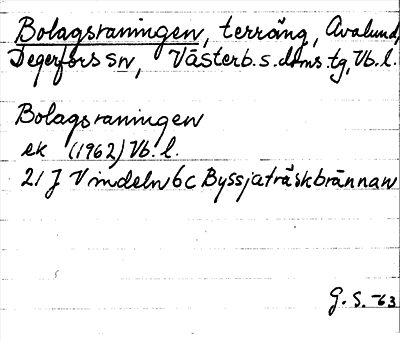 Bolagsraningen, terräng, Avalund,
Degerfors sn, Västerb.s.doms tg, Vb.l.
Bolagsraningen
ek (1962) Vb.l.
21 J Vindeln 6c Byssjaträskbrännan
G.S. -63